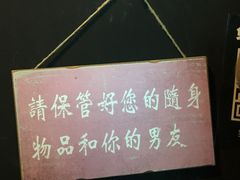 請保管好您的隨身
物品和你的男友